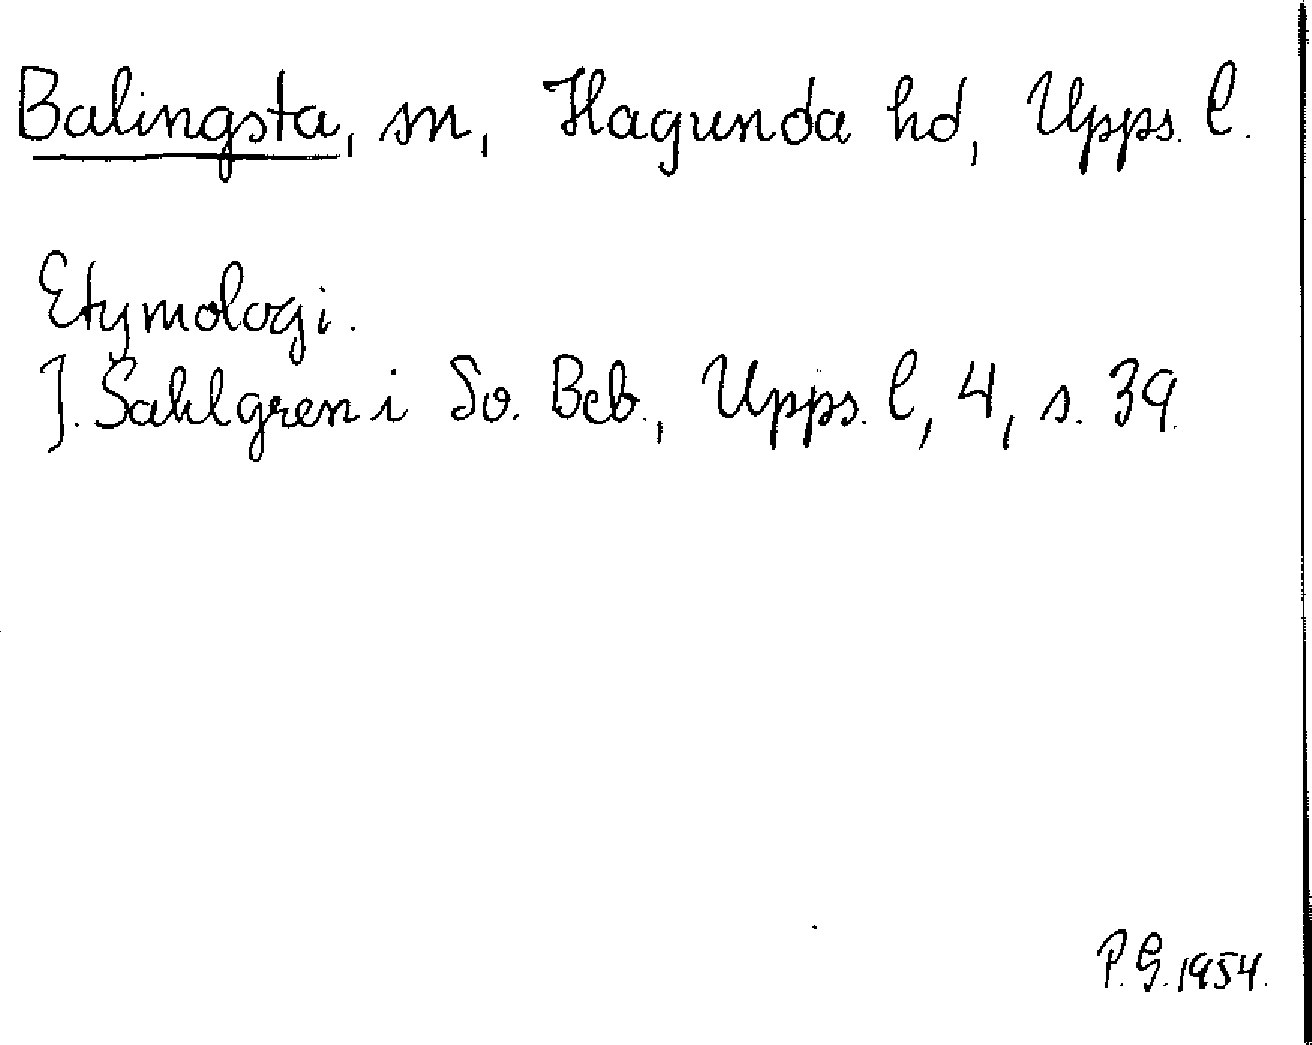 Balingsta, sn, Hagunda hd, Upps. l.
Etymologi.
J. Sahlgren i Sv. Beb., Upps. l, 4, s. 39.
P. G. 1954.